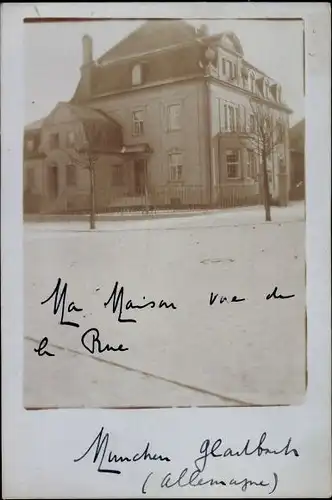 Ma Maison vue de
la Rue
Munchen Gladbach
(Allemagne)